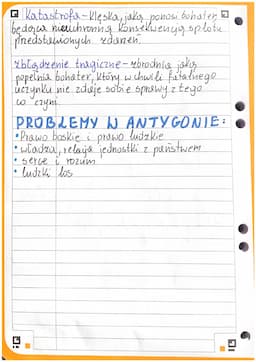 Katastrofa - klęska, jaką ponosi bohater,
będąca nieuchronną konsekwencją splotu
przedstawionych zdarzeń.
zbłądzenie tragiczne - zbrodnia, jaką
popełnia bohater, który w chwili fatalnego
uczynku nie zdaje sobie sprawy z tego
co czyni.
PROBLEMY W ANTYGONIE:
• Prawo boskie i prawo ludzkie
• władza, relacja jednostki z państwem
• serce i rozum
• ludzki los